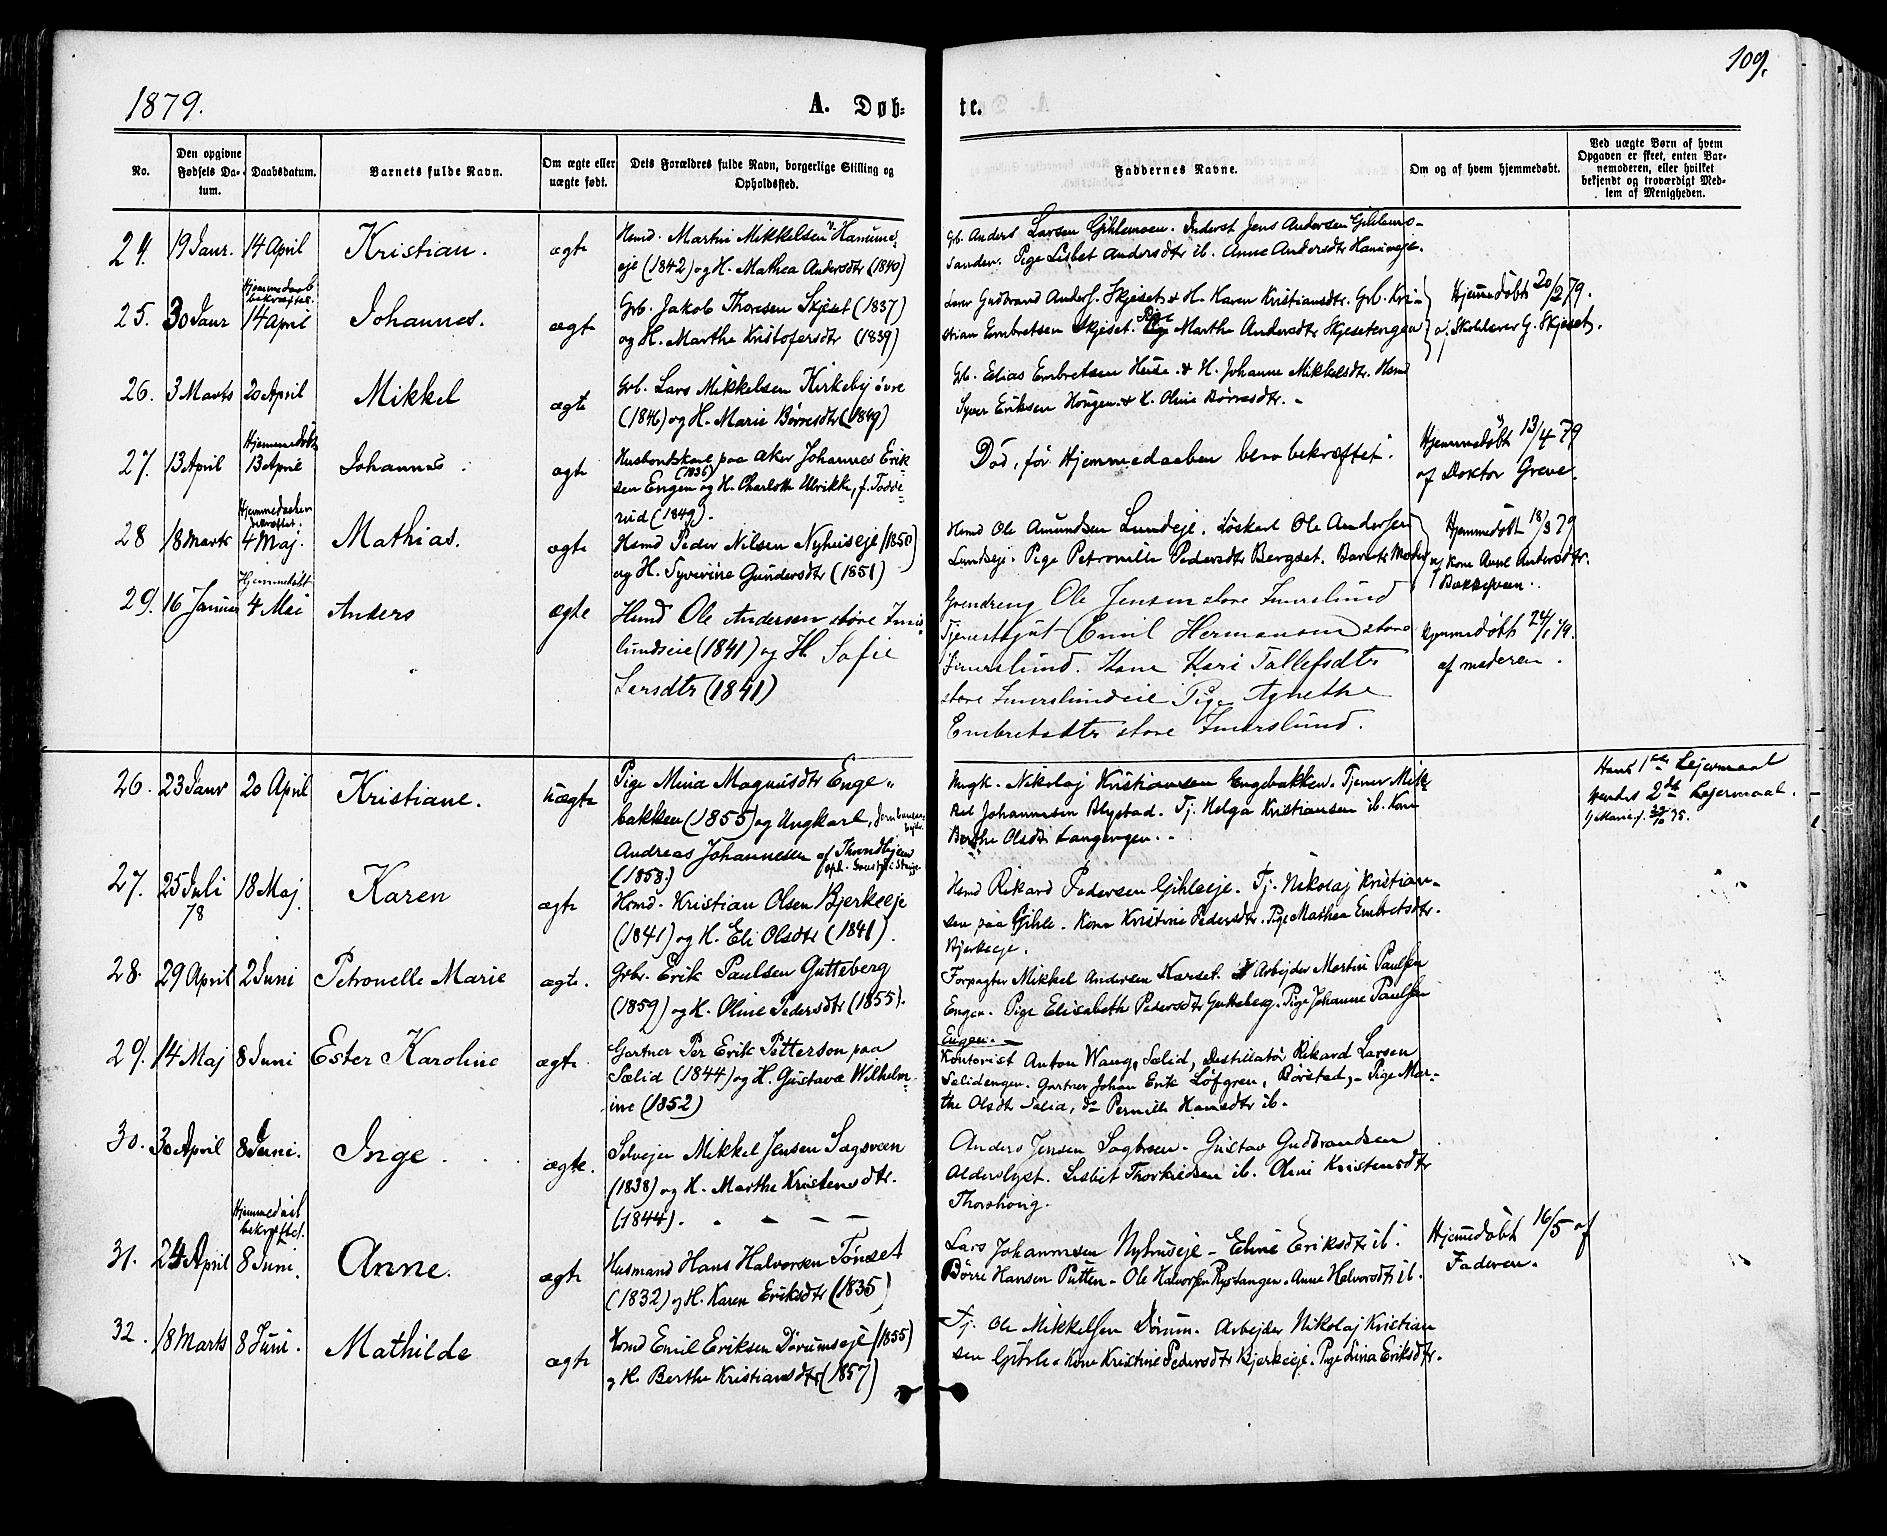 109.
1879.
A. Døb-
te.
No.
Den opgivne Fødsels Datum.
Daabsdatum.
Barnets fulde Navn.
Om ægte eller uægte født.
Dets Forældres fulde Navn, borgerlige Stilling og Opholdssted.
Faddernes Navne.
Om og af hvem hjemmedøbt.
Ved uægte Børn af hvem Opgaven er skeet, enten Barnemoderen, eller hvilket bekjendt og troværdigt Medlem af Menigheden.
24. 19 Janr. 14 April Kristian. ægte
Hsmd. Martin Mikkelsen Hanums-
eje (1842) og H. Mathea Andersdtr (1840)
Gb. Anders Larsen Gihlemoen. Inderst Jens Andersen Gihleurs-
sanden. Pige Lisbet Andersdtr ib. Anne Andersdtr Hanumseje.
25. 30 Janr Hjemmedaab bekræftet. 14 April Johannes. ægte
Grb. Jakob Thoresen Skjeset (1837)
og H. Marthe Kristofersdtr (1839)
Lærer Gudbrand Anders. Skjeset & H. Karen Kristiansdtr. Grb. Kri-
stian Embretsen Skjeset. Pige Marthe Andersdtr Skjesetengen
Hjemmedøbt 20/2 79.
af Skolelærer G. Skjeset.
26. 3 Marts 20 April Mikkel ægte
Grb. Lars Mikkelsen Kirkeby øvre
(1846) og H. Marie Børresdtr (1849)
Gb. Elias Embretsen Heise. & H. Johanne Mikkelsdtr. Hsmd
Syver Eriksen Hougen. & H. Oline Børresdtr.
27. 13 April Hjemmedøbt 13 April Johannes. ægte
Husbondskarl paa Aker Johannes Erik-
sen Engen (1836) og H. Charlotte Ulrikke, f. Fodde-
rud (1849).
Død, før Hjemmedaaben blev bekræftet.
Hjemmedøbt 13/4 79
af Doktor Greve.
28 18 Marts Hjemmedaaben bekræftet. 4 Maj. Mathias. ægte
Hsmd Peder Nilsen Nyhuseje (1850)
og H. Syverine Gundersdtr (1851)
Hsmd Ole Amundsen Lundeje. Løskarl Ole Andersen
Lundseje. Pige Petronelle Pedersdtr Bergset. Barnets Moder
Hjemmedøbt 18/3 79
af Kone Anne Andersdtr.
Bakkeveen.
29. 16 Januar Hjemmedøbt 4 Mai Anders ægte
Hsmd Ole Andersen store Imis-
lundseie (1841) og H. Sofie
Larsdtr (1841)
Grendreng Ole Jensen store Imerslund
Tjenestegut Emil Hermansen store
Imerslund. Kone Kari Tollefsdtr
store Imerslundeie Pige Agnethe
Embretsdtr store Imerslund.
Hjemmedøbt 24/1 79.
af moderen.
26. 23 Janr 20 April Kristiane. uægte
Pige Mina Magnusdtr Enge-
bakken (1855) og Ungkarl,
Andreas Johannesen af Throndhjem
(1853)
Ungk. Nikolaj Kristiansen Engebakken. Tjener Mik-
kel Johannesen Blystad. Tj. Helga Kristiansen ib. Kone
Berthe Olsdtr Langengen.
Hans 1ste Lejermaal
Hendes 2det Lejermaal.
27. 25 Juli 78 18 Maj Karen ægte
Hsmd. Kristian Olsen Bjerkeeje
(1841) og H. Eli Olsdtr (1841).
Hsmd Rikard Pedersen Gihleeje. Tj. Nikolaj Kristian-
sen paa Gihle. Kone Kristine Pedersdtr. Pige Mathea Embretsdtr.
Bjerkeeje.
28. 29 April 2 Juni Petronelle Marie ægte.
Grbr. Erik Paulsen Gutteberg
(1859) og H. Oline Pedersdtr (1855).
Forpagter Mikkel Andersen Karset. Arbejder Martin Paulsen
Engen. Pige Elisabeth Pedersdtr Gutteberg. Pige Johanne Paulsen
Engen.
29. 14 Maj 8 Juni Ester Karoline ægte
Gartner Per Erik Petterson paa
Sælid (1844) og H. Gustava Wilhelm-
ine (1852)
Kontorist Anton Wang, Sælid, Destillatør Rikard Larsen
Sælidengen. Gartner Johan Erik Löfgren, Börstad, Pige Mar-
the Olsdtr Sælid, do Pernille Hansdtr ib.
30. 30 April 8 Juni. Inge. ægte.
Selvejer Mikkel Jensen Sagsveen
(1838) og H. Marthe Kristensdtr.
(1844).
Anders Jensen Sagsveen. Gustav Gudbrandsen
Alderslyst. Lisbet Thorkildsen ib. Oline Kristensdtr
Thorshoug.
31. 24 April Hjemmedaab bekræftet. 8 Juni. Anne. ægte
Husmand Hans Halvorsen Tønset
(1832) og H. Karen Eriksdtr (1835)
Lars Johannesen Nyhuseje. Eline Eriksdtr ib.
Börre Hansen Putten. Ole Halvorsen Rystangen. Anne Halvorsdtr ib.
Hjemmedøbt 16/5 af
Faderen.
32. 18 Marts 8 Juni. Mathilde ægte
Hsmd Emil Eriksen Dørumseje (1855)
og H. Berthe Kristiansdtr (1857)
Tj. Ole Mikkelsen Dørum. Arbejder Nikolaj Kristian
sen Gihle. Kone Kristine Pedersdtr Bjerkeeje. Pige Lina Eriksdtr.